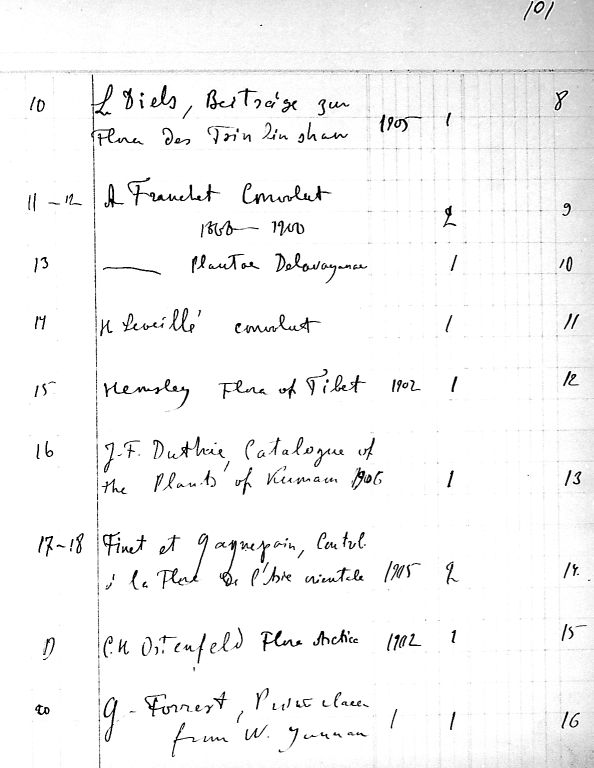 101
10 L Diels, Beiträge zur 8
Flora des Tsin lin shan 1905 1
11-12 A Franchet Convolut 9
1888-1900 2
13 —— Plantae Delavayanae 1 10
14 H Leveillé convolut 1 11
15 Hemsley Flora of Tibet 1902 1 12
16 J.F. Duthie, Catalogue of
the Plants of Kumaon 1906 1 13
17-18 Finet et Gagnepain, Contrib.
à la Flore de l'Asie orientale 1905 2 14.
C.H Ostenfeld Flora Arctica 1902 1 15
20 G - Forrest, Primulaceae
from W. Yunnan 1 1 16